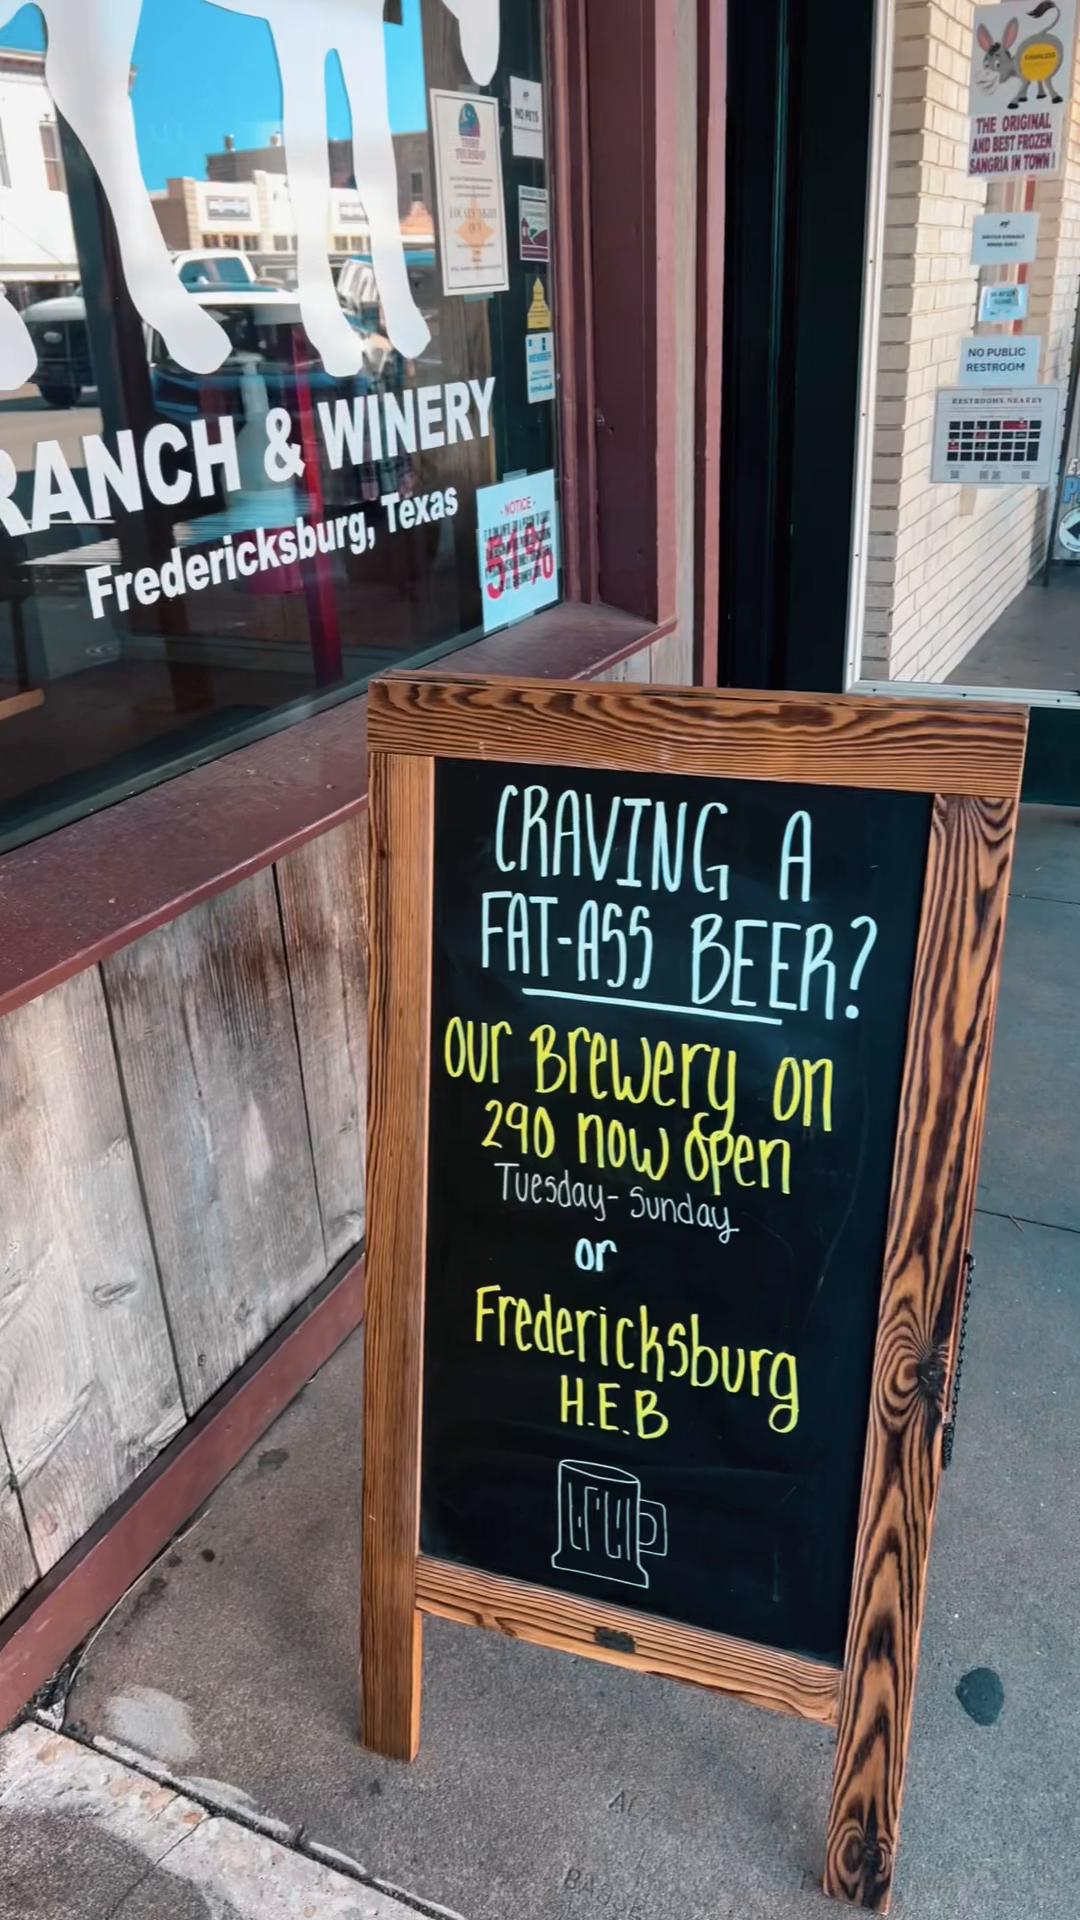 RANCH & WINERY
Fredericksburg, Texas
THIRD
THURSDAY
LOCALS NIGHT
OUT
NO PETS
MEMBER
- NOTICE -
51%
THE ORIGINAL
AND BEST FROZEN
SANGRIA IN TOWN!
NO PUBLIC
RESTROOM
RESTROOMS NEARBY
CRAVING A
FAT-ASS BEER?
our Brewery on
290 now open
Tuesday- Sunday
or
Fredericksburg
H.E.B